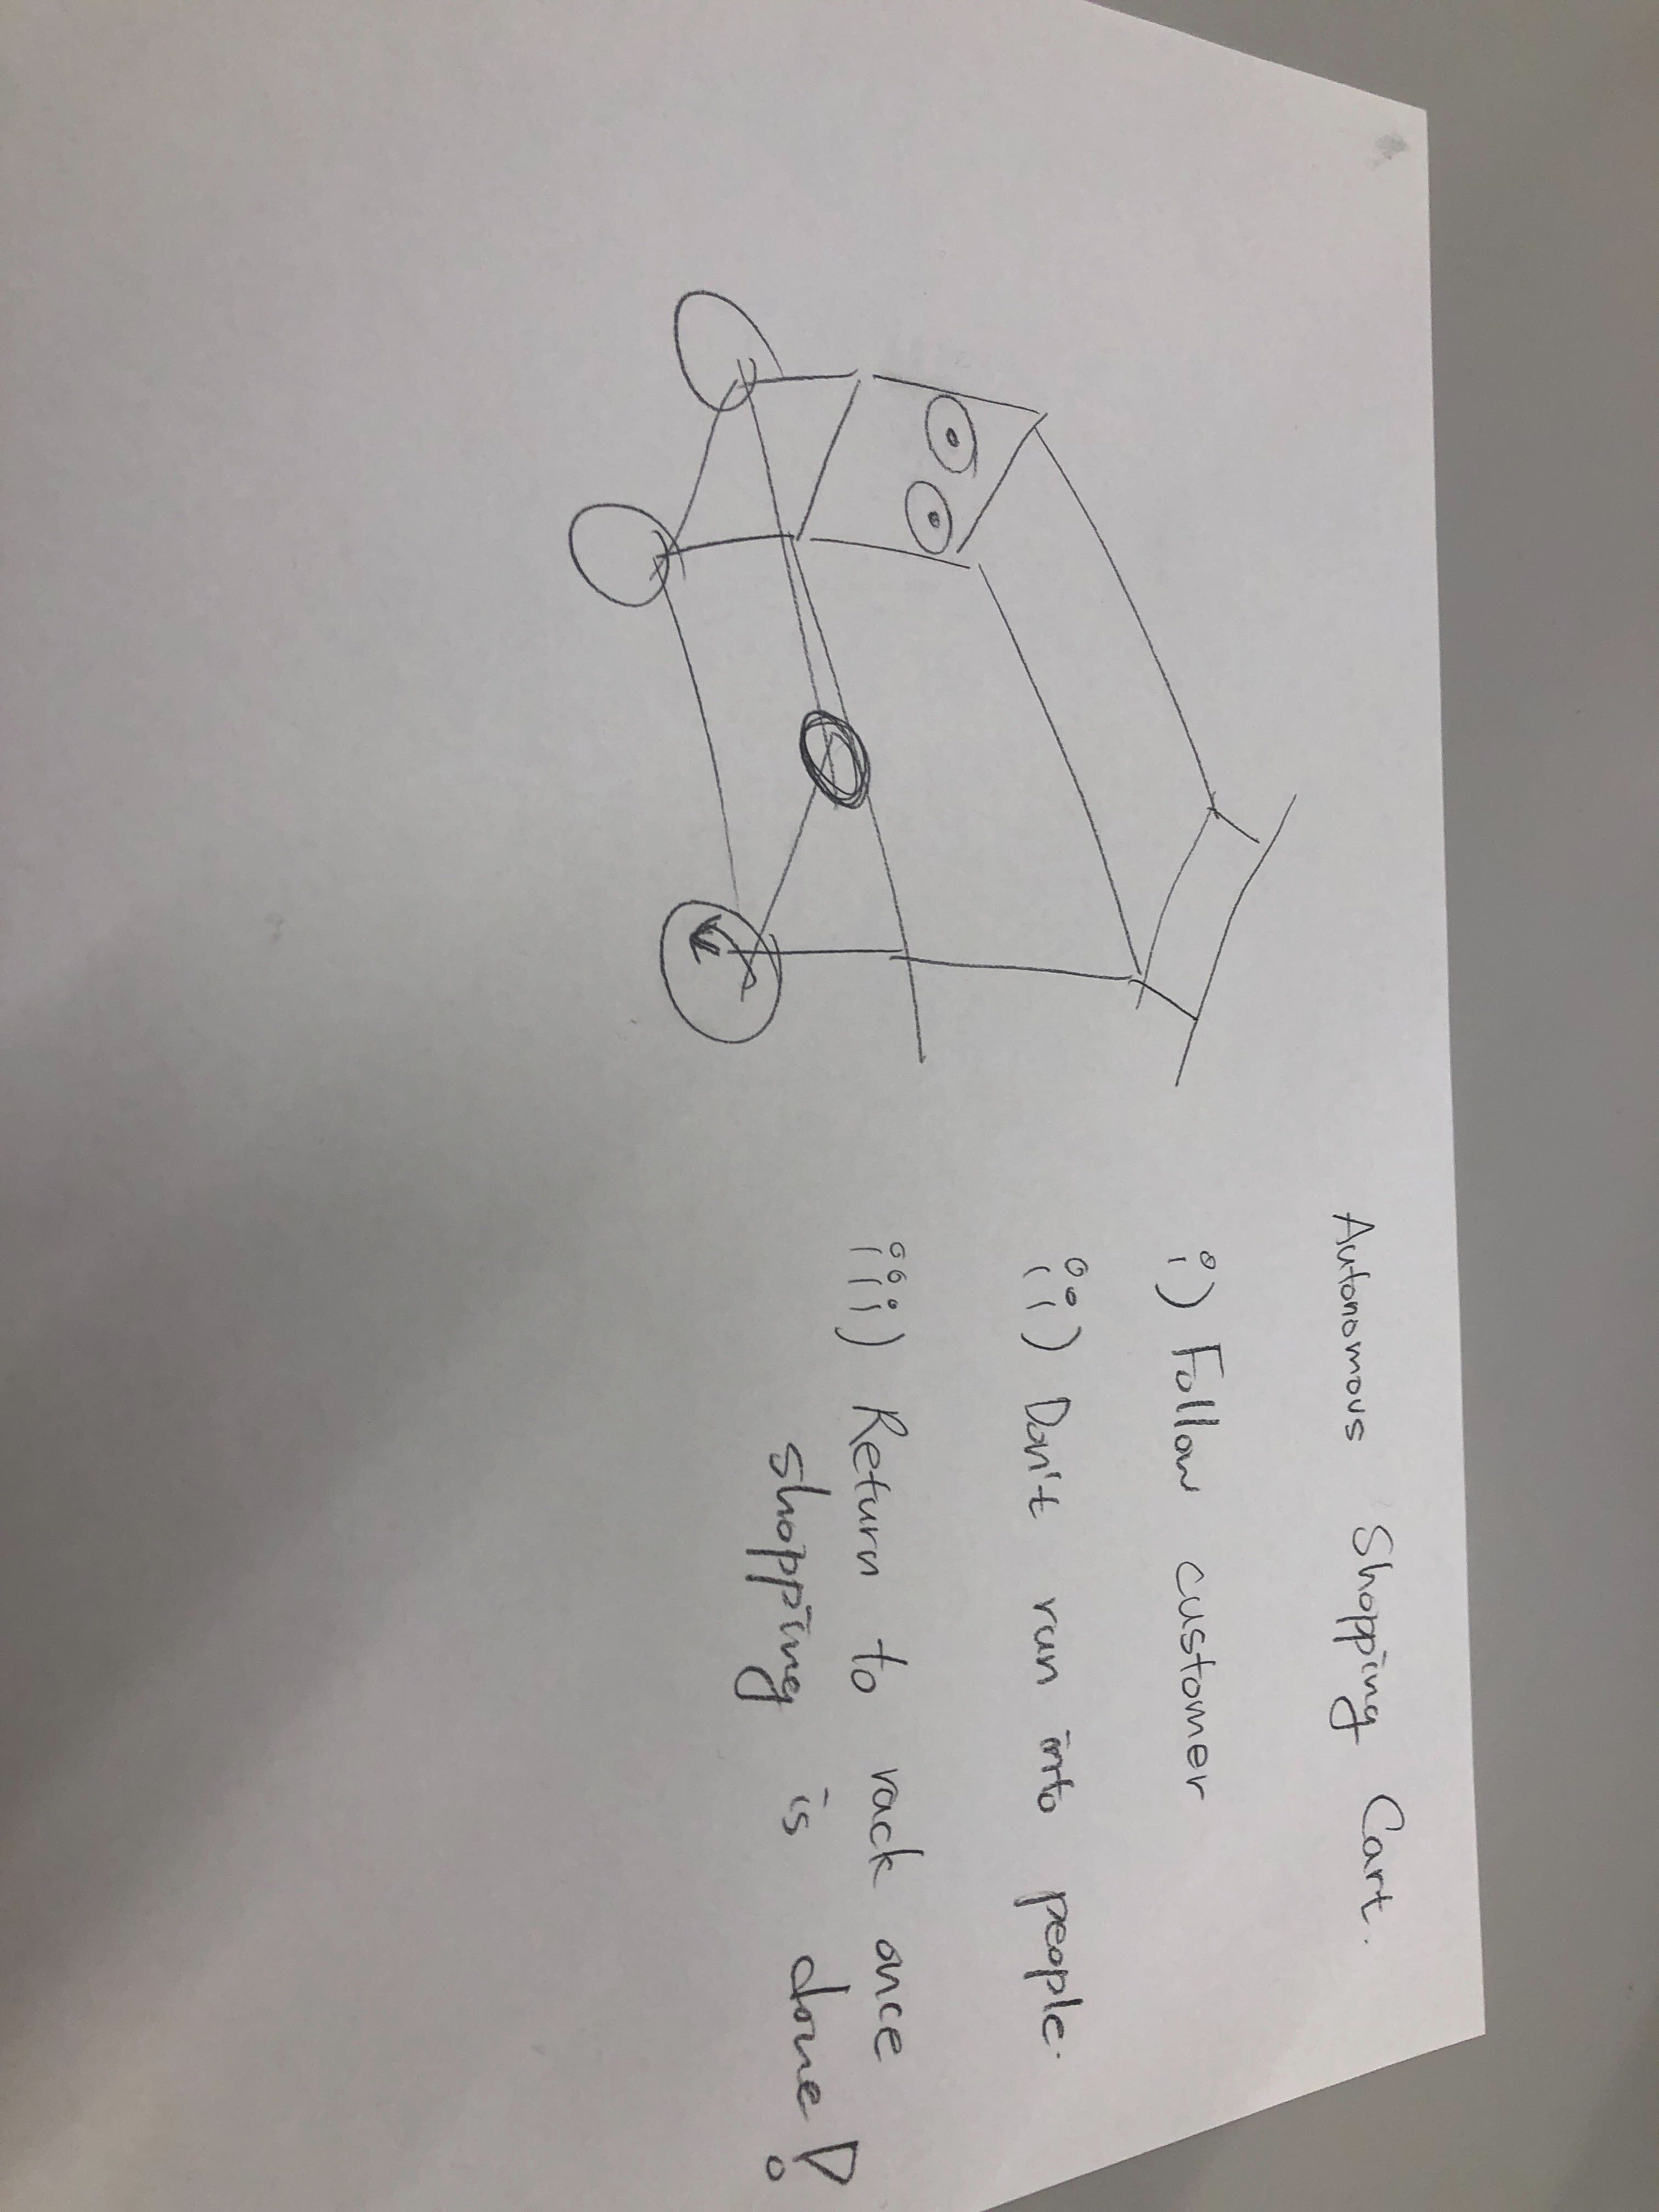 Autonomous Shopping Cart.
i) Follow customer
ii) Don't run into people.
iii) Return to rack once
shopping is done!